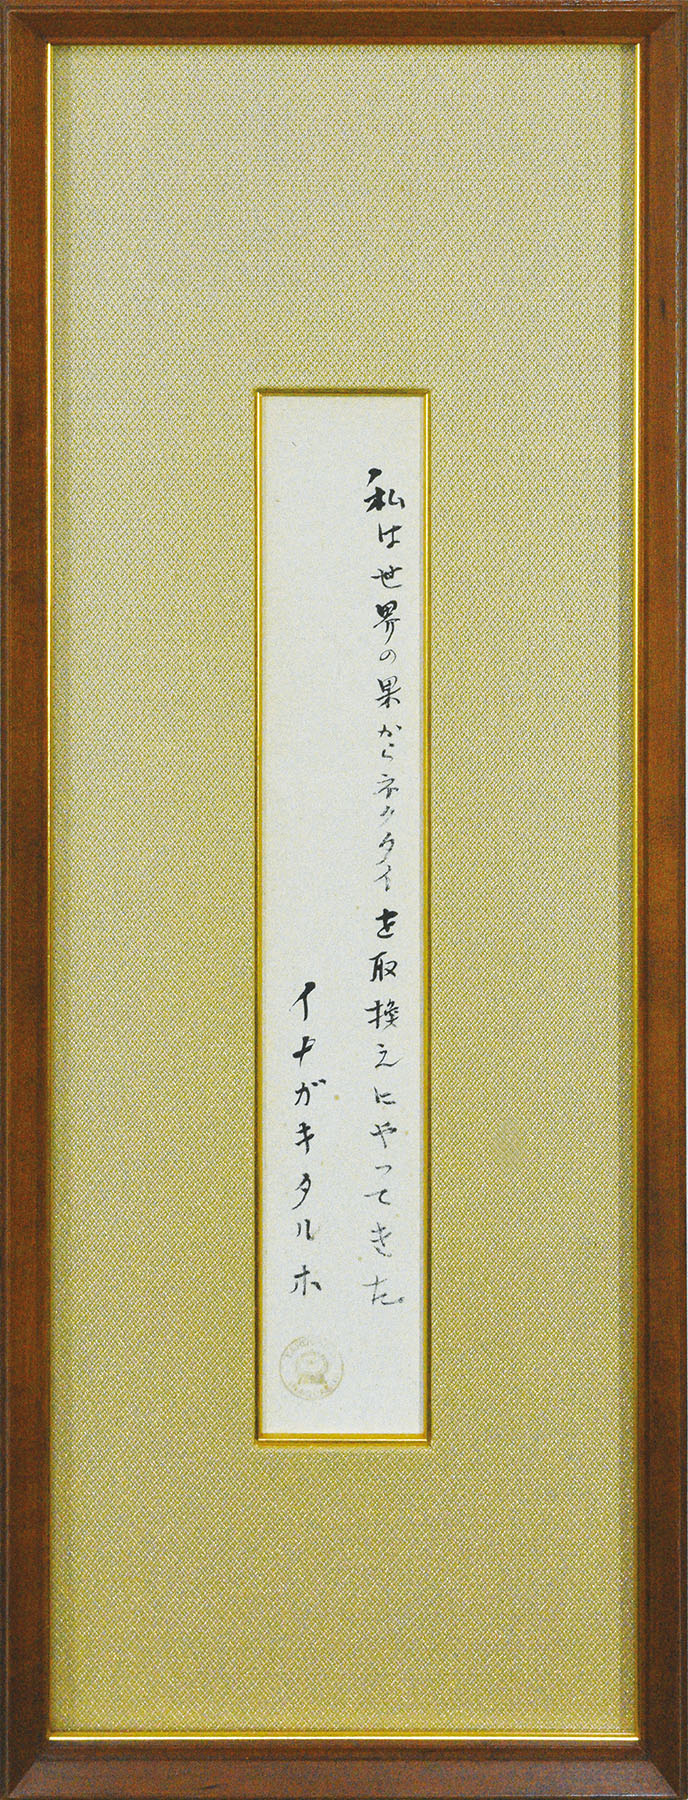 私は世界の果からネクタイを取換えにやってきた。
イナガキタルホ